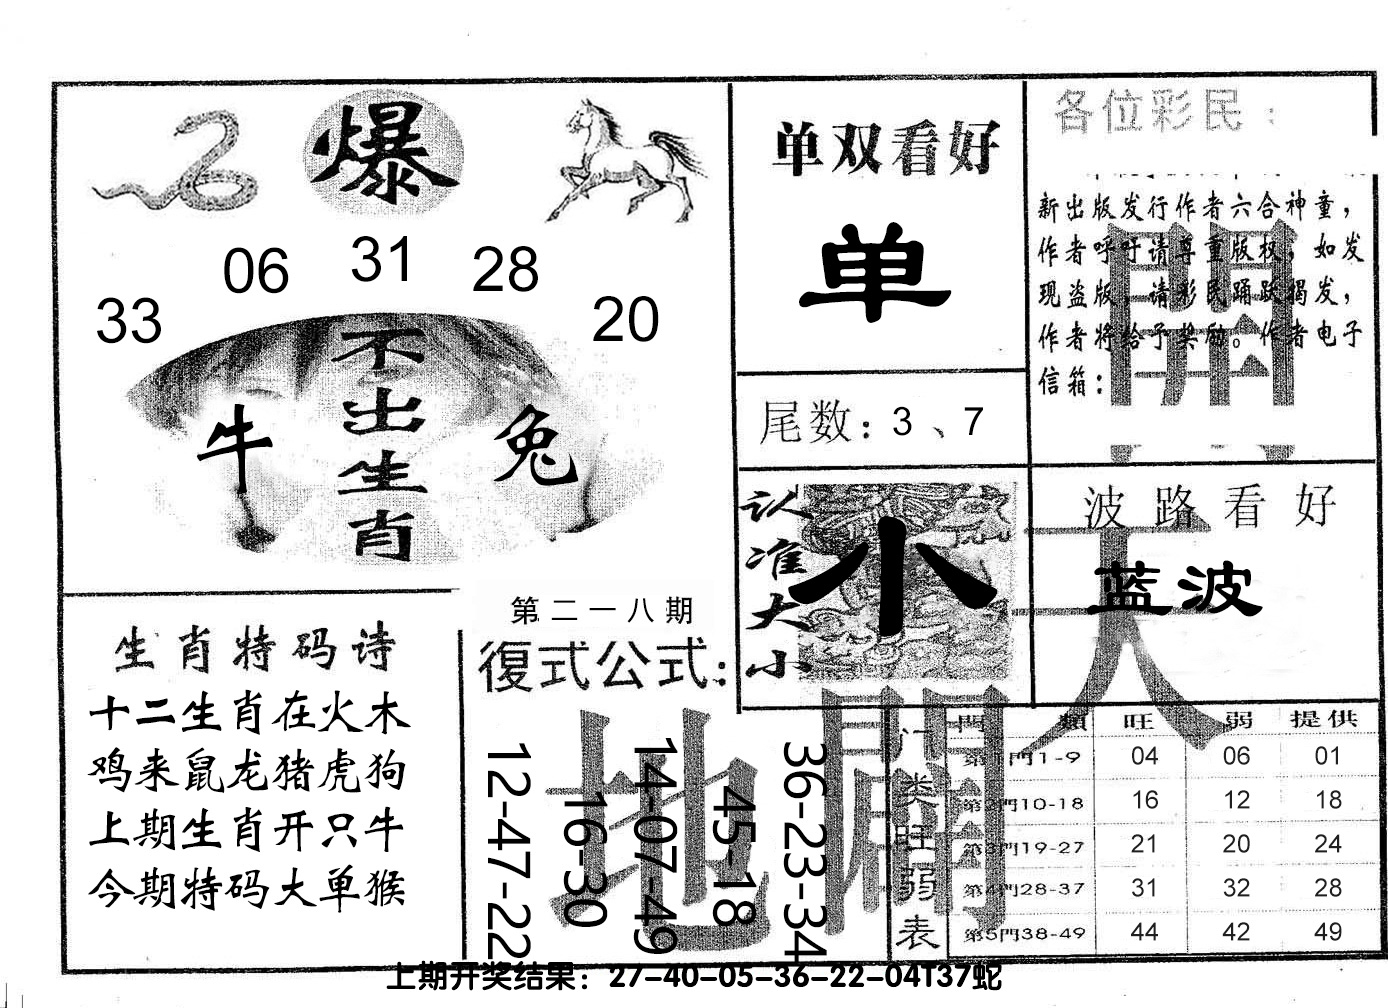 爆
06 31 28
33 20
不出生肖
牛 兔
单双看好
单
尾数：3、7
各位彩民：
新出版发行作者六合神童，
作者呼吁请尊重版权，如发
现盗版，请彩民踊跃揭发，
作者将给予奖励。作者电子
信箱：
认准大小
小
波路看好
蓝波
生肖特码诗
十二生肖在火木
鸡来鼠龙猪虎狗
上期生肖开只牛
今期特码大单猴
第二一八期
復式公式：
12-47-22
16-30
14-07-49
45-18
36-23-34
天
地
门类旺弱表
門類 旺 弱 提供
第1門1-9 04 06 01
第2門10-18 16 12 18
第3門19-27 21 20 24
第4門28-37 31 32 28
第5門38-49 44 42 49
上期开奖结果：27-40-05-36-22-04T37蛇